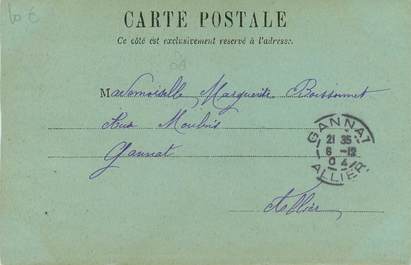 CARTE POSTALE
Ce côté est exclusivement reservé à l'adresse.
Mademoiselle Marguerite Boissonnet
Aux Moulins
Gannat
Allier
GANNAT
21 35
6 -12
04
ALLIER